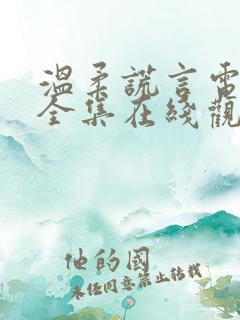 溫柔謊言電
全集在綫觀
他的國
未经同意禁止转载